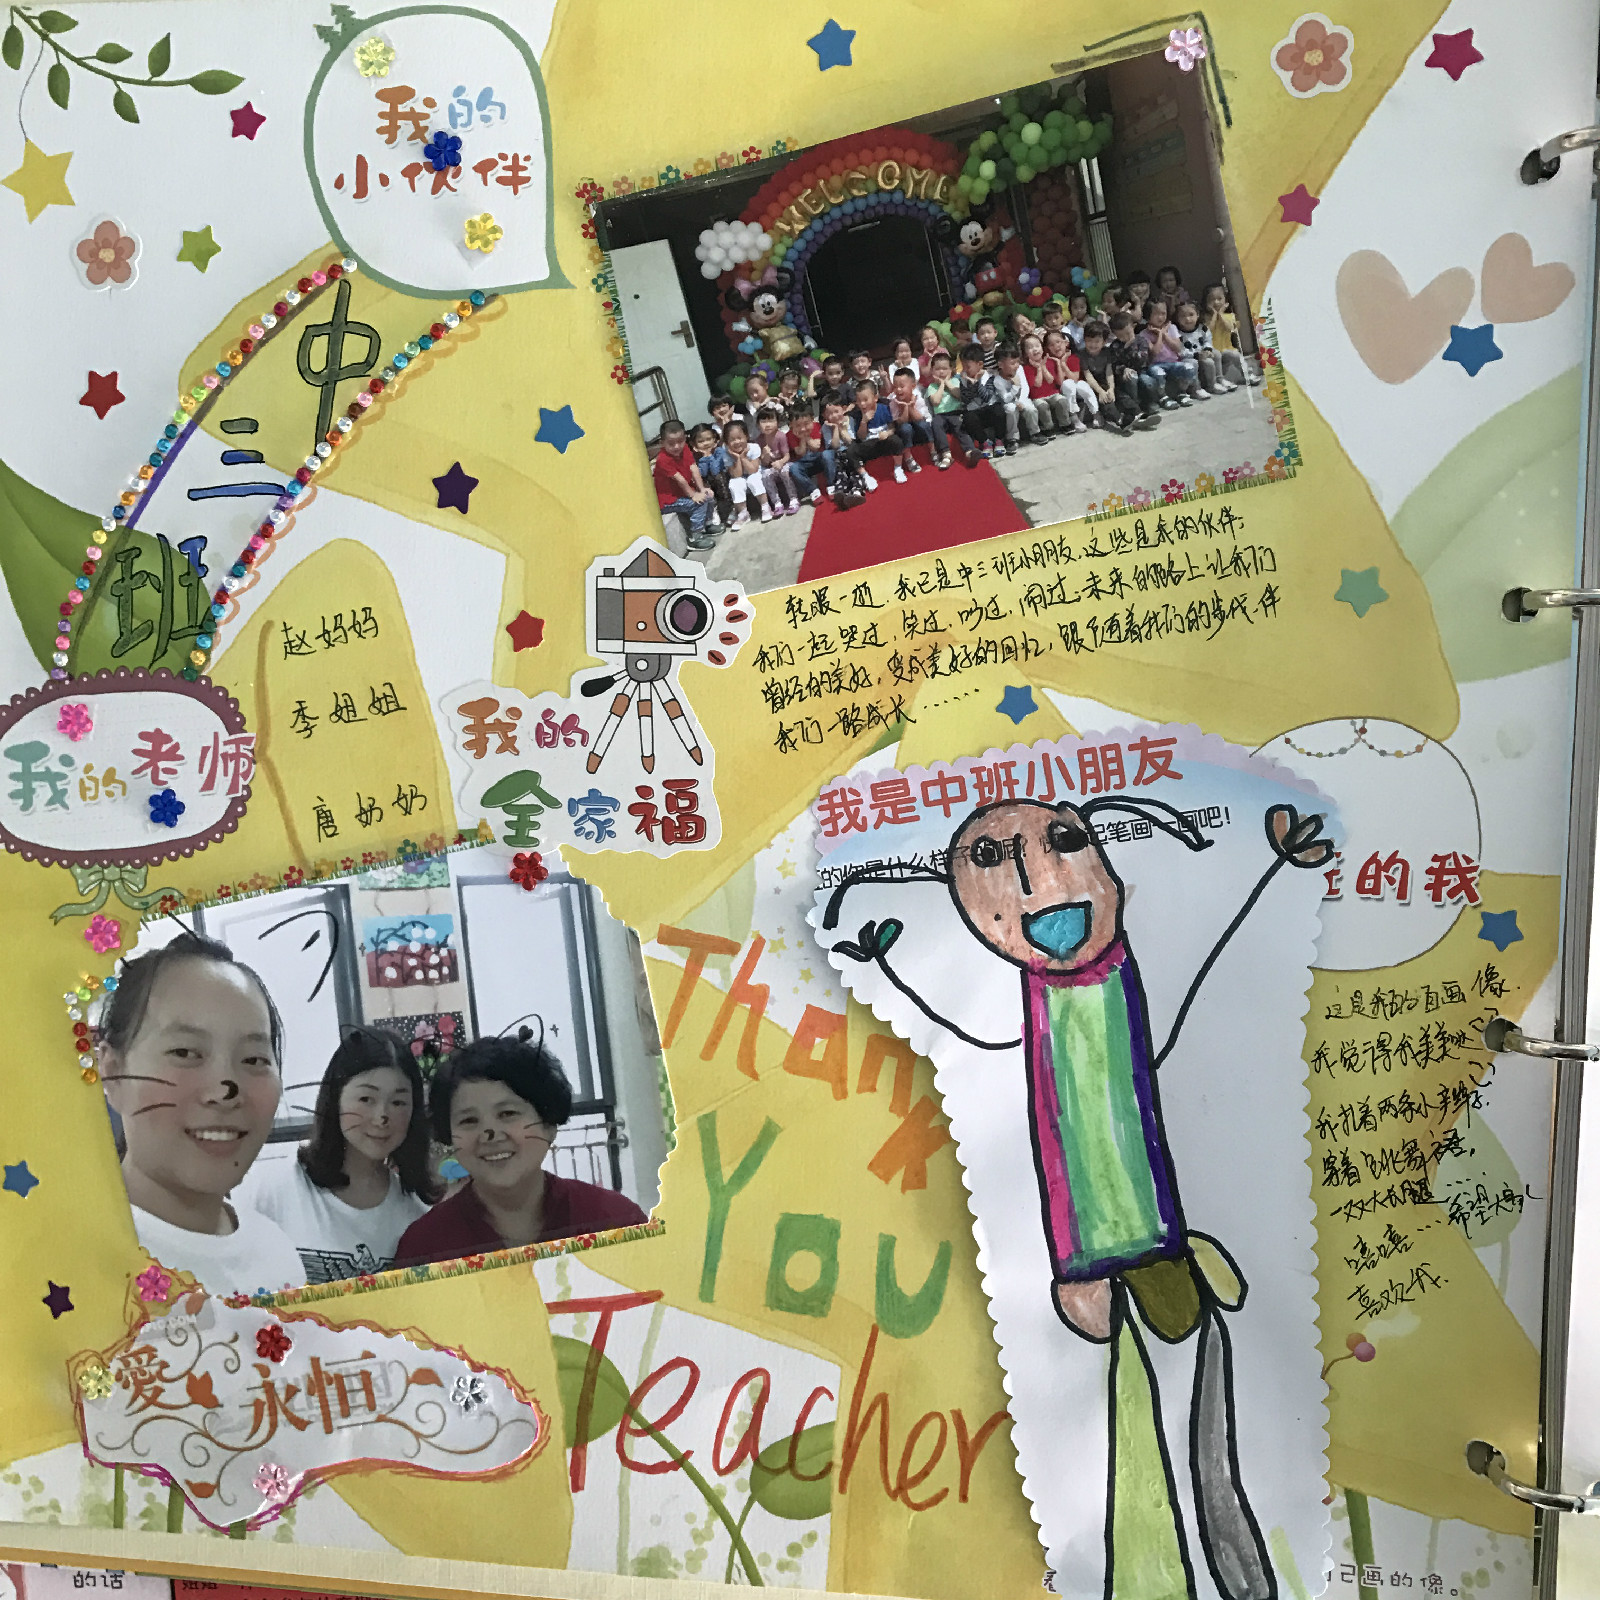 我的
小伙伴
WELCOME
中
三
班
转眼一逝，我已是中三班小朋友，这些是我的伙伴；
我们一起哭过，笑过，吵过，闹过；未来的路上让我们
曾经的美好，变成美好的回忆，跟随着我们的步伐伴
我们一路成长……
我的老师
赵妈妈
李姐姐
唐奶奶
我的
全家福
我是中班小朋友
的你是什么样子的
记笔画一画吧！
的我
这是我的自画像，
我觉得我美美哒
我扎着两条小辫子，
穿着
一双大长腿……
嘻嘻……希望大家
喜欢我。
Thank
You
Teacher
愛 永恒
的话
己画的像。